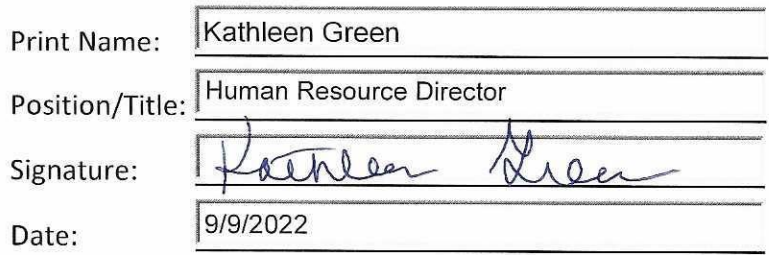 Print Name: Kathleen Green
Position/Title: Human Resource Director
Signature: Kathleen Green
Date: 9/9/2022